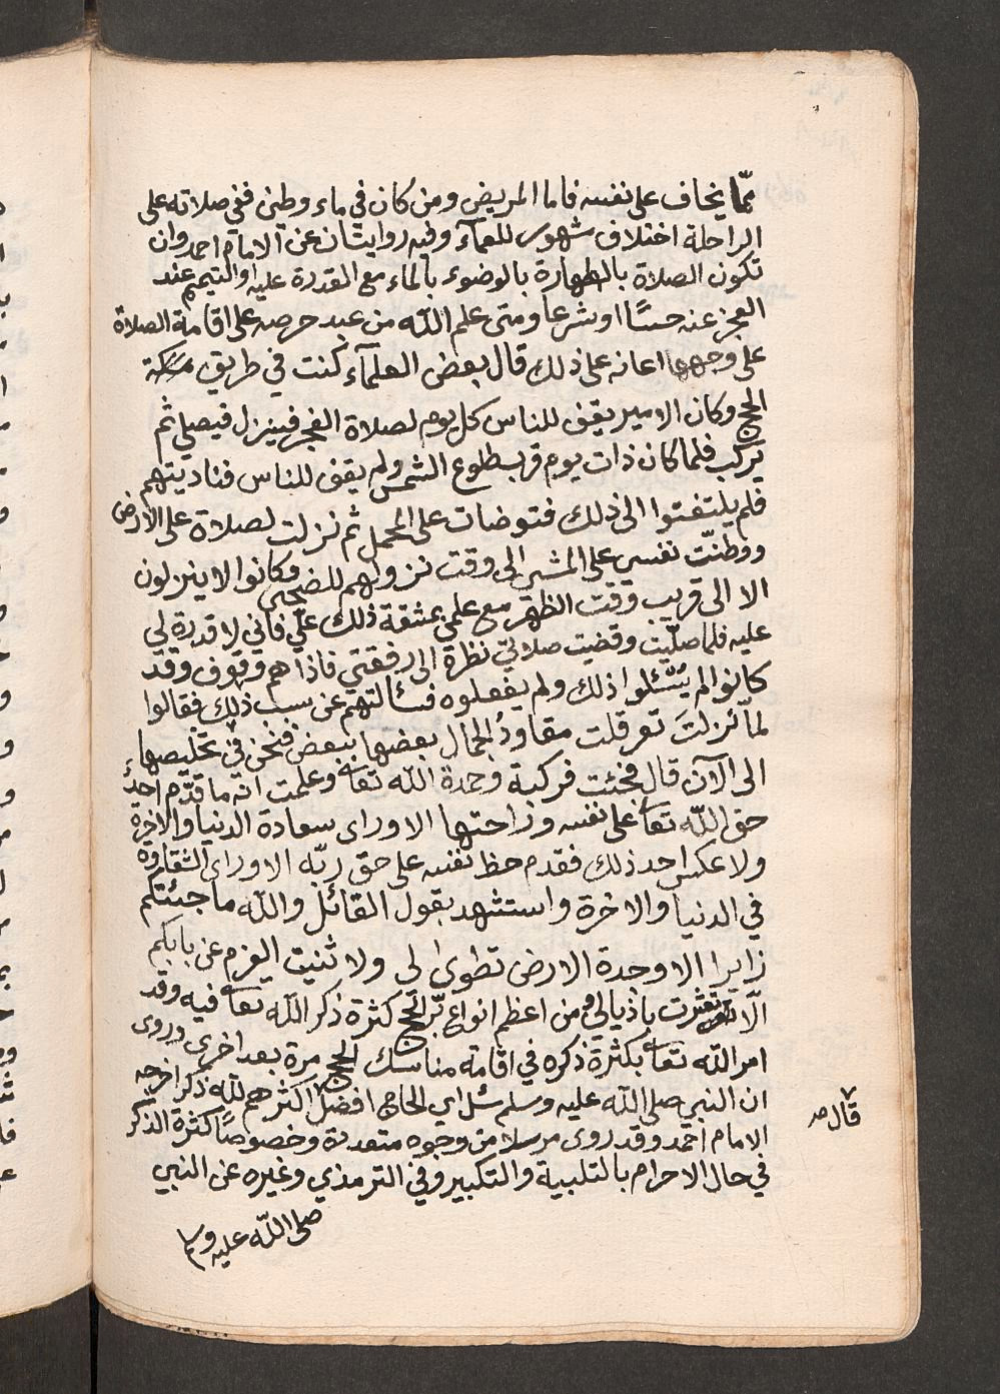 ممّا يخاف على نفسه فاما المريض ومن كان في ماء وطين ففي صلاته على
الراحلة اختلاف مشهور للعمآء وفيه روايتان عن الامام احمد وان
تكون الصلاة بالطهارة بالوضوء بالماء مع القدرة عليه او التيمم عند
العجز عنه حسًا اوشرعا ومتى علم الله من عبد حرصه على اقامة الصلاة
على وجهها اعانه على ذلك قال بعض العلمآء كنت في طريق
الحج وكان الامير يقف للناس كل يوم لصلاة الفجر فينزل فيصلي ثم
يركب فلما كان ذات يوم قرب طلوع الشمس ولم يقف للناس فناديتهم
فلم يلتفتوا الى ذلك فتوضات على المحمل ثم نزلت لصلاة على الارض
ووطنّت نفسي على المشي الى وقت نزولهم للضحى وكانوا لا ينزلون
الا الى قريب وقت الظهر مع علمي بمشقة ذلك علّي فاني لا قدرة لي
عليه فلما صلّيت وقضيت صلاتي نظرة الى رفقتي فاذا هم وقوف وقد
كانوا لم يسّئلوا ذلك ولم يفعلوه فسألتهم عن سبب ذلك فقالوا
لمّا نزلتَ تعرقلت مقاودُ الجمال بعضها ببعض فنحن في تخليصها
الى الآن قال فجئت فركبة وحمدة الله تعا وعلمت انه ما قدّم احدُ
حق الله تعا على نفسه وراحتها الا وراى سعادة الدنيا والاخرة
ولا عكس احد ذلك فقدم حظ نفسه على حق ربّه الا وراى الشقاروة
في الدنيا والاخرة واستشهد بقول القائل والله ما جئتكم
زايرا الا وجدة الارض تطوى لي ولا ثنيت العزم عن بابكم
الّا تعثرت باذيالي ومن اعظم انواع برّ الحج كثرة ذكر الله تعا فيه وقد
امر الله تعا بكثرة ذكره في اقامة مناسك الحج مرة بعد اخرى وروى
ان النبي صلى الله عليه وسلم سئل اي الحاج افضل اكثرهم لله ذكرا خرجه
قال صـ
الامام احمد وقد روى مرسلا من وجوه متعددة وخصوصًا كثرة الذكر
في حال الاحرام بالتلبية والتكبير وفي الترمذي وغيره عن النبي
صلى الله عليه وسلم